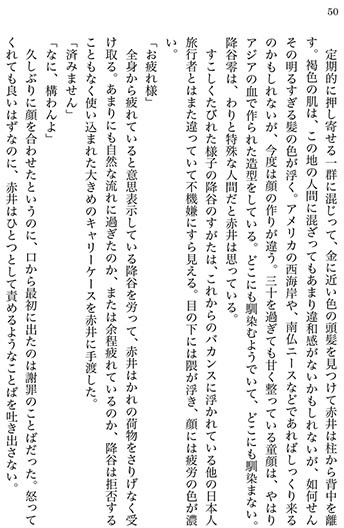 50
　定期的に押し寄せる一群に混じって、金に近い色の頭髪を見つけて赤井は柱から背中を離
す。褐色の肌は、この地の人間に混ざってもあまり違和感がないかもしれないが、如何せん
その明るすぎる髪の色が浮く。アメリカの西海岸や、南仏ニースなどであればしっくり来る
のかもしれないが、今度は顔の作りが違う。三十を過ぎても甘く整っている童顔は、やはり
アジアの血で作られた造型をしている。どこにも馴染むようでいて、どこにも馴染まない。
降谷零は、わりと特殊な人間だと赤井は思っている。
　すこしくたびれた様子の降谷のすがたは、これからのバカンスに浮かれている他の日本人
旅行者とはまた違っていて不機嫌にすら見える。目の下には隈が浮き、顔には疲労の色が濃
い。
「お疲れ様」
　全身から疲れていると意思表示している降谷を労って、赤井はかれの荷物をさりげなく受
け取る。あまりにも自然な流れに過ぎたのか、または余程疲れているのか、降谷は拒否する
こともなく使い込まれた大きめのキャリーケースを赤井に手渡した。
「済みません」
「なに、構わんよ」
　久しぶりに顔を合わせたというのに、口から最初に出たのは謝罪のことばだった。怒って
くれても良いはずなのに、赤井はひとつとして責めるようなことばを吐き出さない。